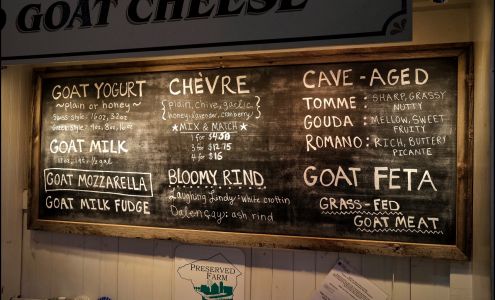 GOAT CHEESE
GOAT YOGURT
~plain or honey~
Swiss style: 16oz, 32oz
Greek style: 4oz, 8oz, 16
GOAT MILK
1/2 gal
GOAT MOZZARELLA
GOAT MILK FUDGE
CHÈVRE
{plain, chive, garlic
honey, lavender, cranberry}
★MIX & MATCH★
1 for $4.50
3 for $12.75
4 for $16
BLOOMY RIND
Laughing Lindy: white crottin
Dalençay: ash rind
CAVE-AGED
TOMME: SHARP, GRASSY
NUTTY
GOUDA: MELLOW, SWEET
FRUITY
ROMANO: RICH, BUTTERY
PICANTE
GOAT FETA
GRASS-FED
GOAT MEAT
PRESERVED
FARM